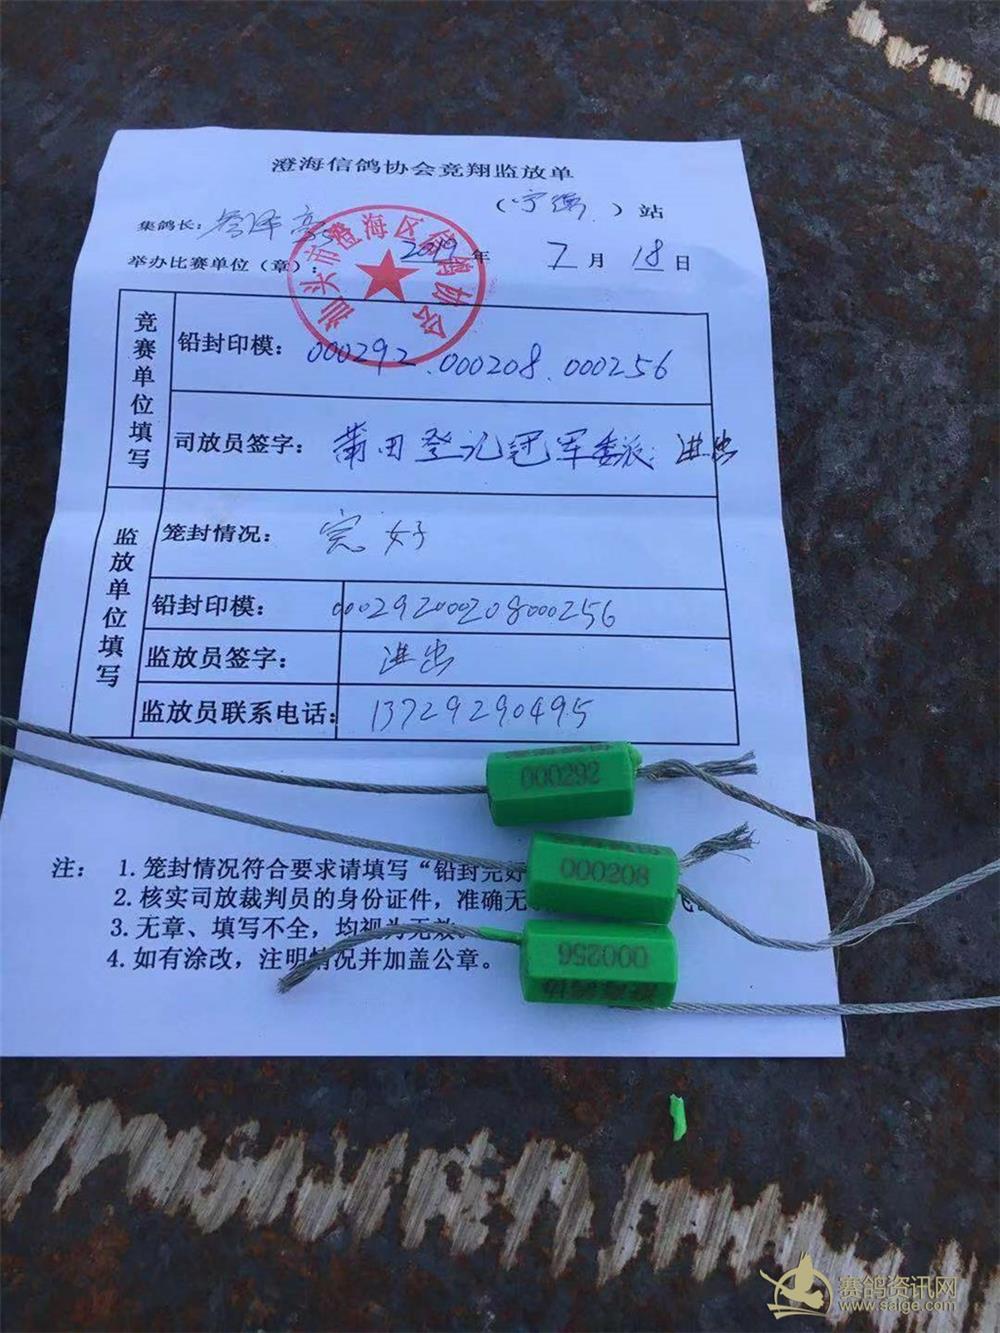 澄海信鸽协会竞翔监放单
（宁德）站
集鸽长：
举办比赛单位（章）： 2019年 7月 18日
汕头市澄海区信鸽协会
竞赛单位填写
铅封印模： 000292.000208.000256
司放员签字： 莆田登记冠军委派：进忠
监放单位填写
笼封情况： 完好
铅封印模： 000292000208000256
监放员签字： 进忠
监放员联系电话： 13729290495
000292
000208
000256
注： 1. 笼封情况符合要求请填写“铅封完好
2. 核实司放裁判员的身份证件，准确无
3. 无章、填写不全，均视为无效。
4. 如有涂改，注明情况并加盖公章。
赛鸽资讯网
www.saige.com